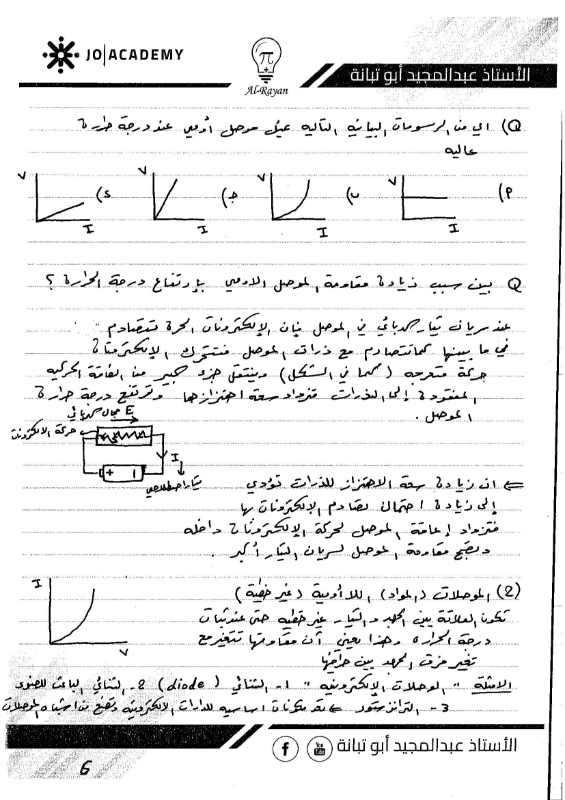 JO|ACADEMY
Al-Rayan
الأستاذ عبدالمجيد أبو تبانة
Q) اي من الرسومات البيانية التالية تمثل موصل أومي عند درجة حرارة
عالية
أ) V I
ب) V I
جـ) V I
د) V I
Q بين سبب زيادة مقاومة الموصل الاومي بإرتفاع درجة الحرارة ؟
عند سريان تيار كهربائي في الموصل فإن الإلكترونات الحرة تتصادم
في ما بينها كما تتصادم مع ذرات الموصل فتتحرك الإلكترونات
حركة متعرجة (كما في الشكل) وينتقل جزء كبير من الطاقة الحركية
المفقودة إلى الذرات فتزداد سعة اهتزازها وترتفع درجة حرارة
الموصل .
مجال كهربائي E
حركة الالكترونات
I
+ -
تيار اصطلاحي
⇐ ان زيادة سعة الاهتزاز للذرات تؤدي
إلى زيادة احتمال تصادم الإلكترونات بها
فتزداد إعاقة الموصل لحركة الإلكترونات داخله
وتصبح مقاومة الموصل لسريان التيار أكبر .
(2) الموصلات (المواد) اللاأومية (غير خطية)
تكون العلاقة بين الجهد والتيار غير خطية حتى عند ثبات
درجة الحرارة وهذا يعني أن مقاومتها تتغير مع
تغير فرق الجهد بين طرفيها
I V
الامثلة " الوصلات الإلكترونية " 1- الثنائي (diode) 2- الثنائي الباعث للضوء
3- الترانزستور ⇐ تعد مكونات اساسية للدارات الالكترونية وتصنع من اشباه الموصلات
الأستاذ عبدالمجيد أبو تبانة
f You Tube
6